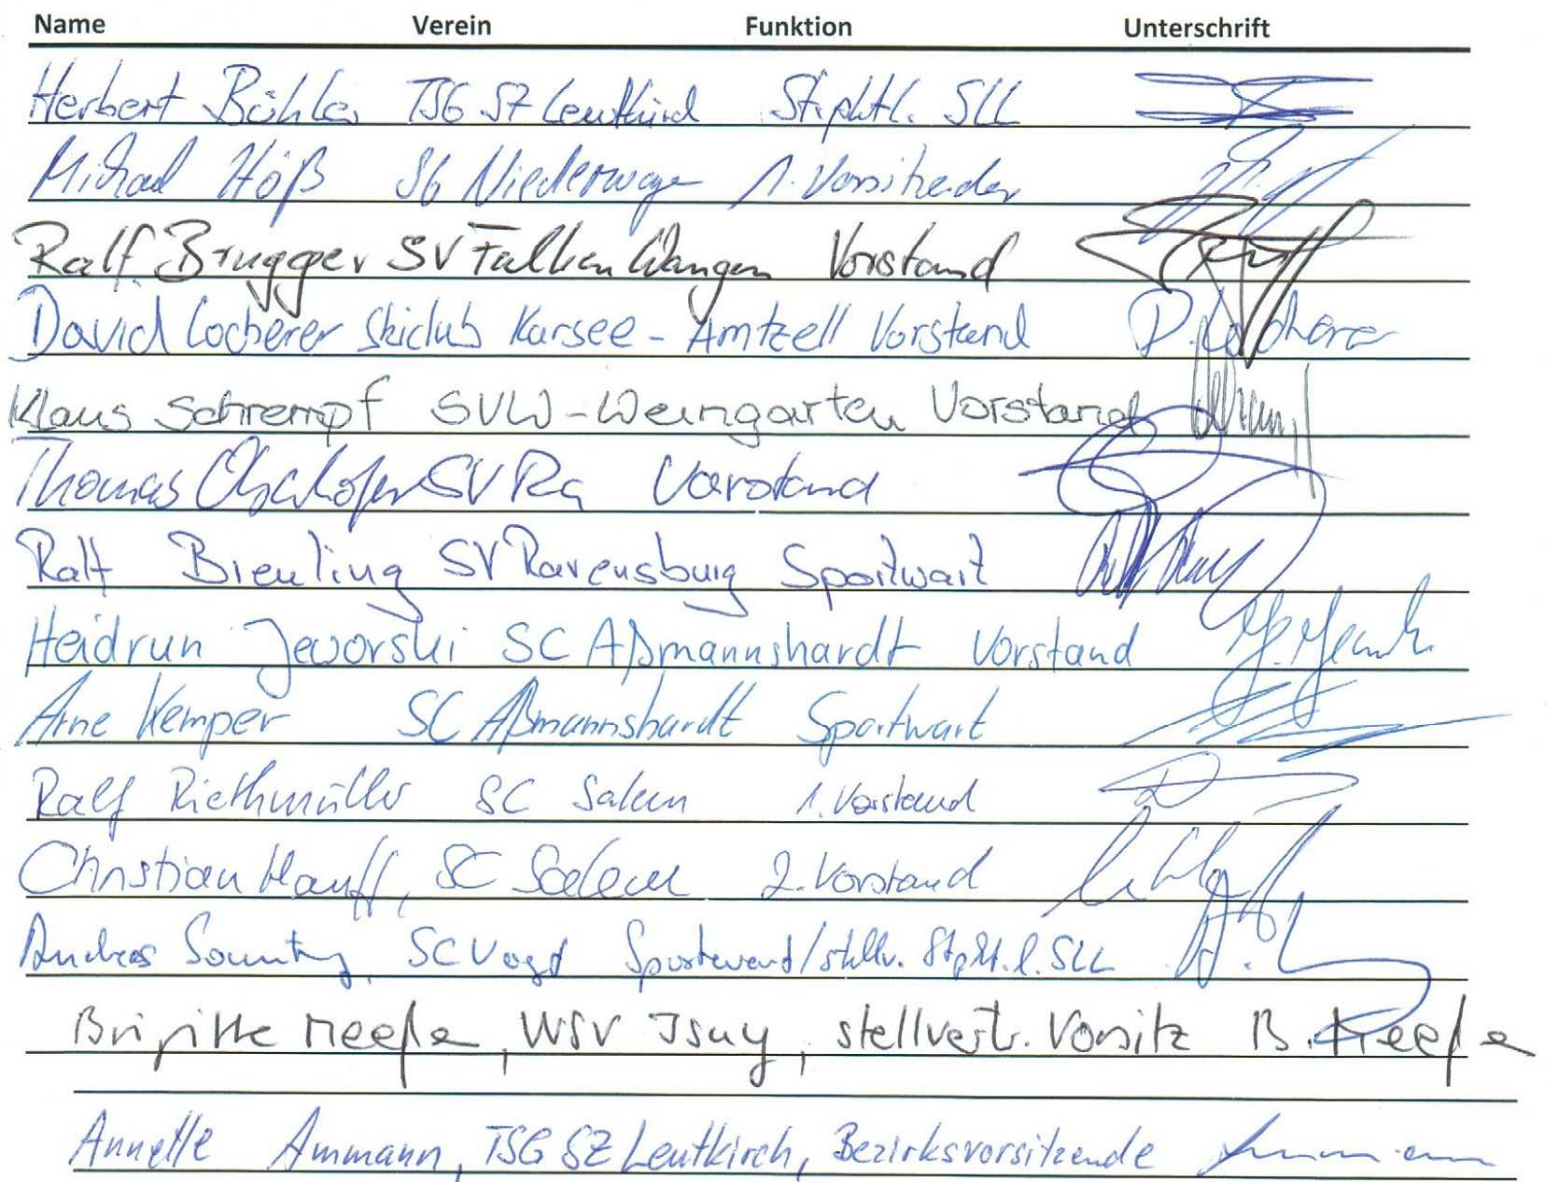 Name Verein Funktion Unterschrift
Herbert Bühler TSG SZ Leutkirch Stiphtl. SLL
Michael Höß SG Niederwangen 1. Vorsitzender
Ralf Brugger SV Falken Wangen Vorstand
David Locherer Skiclub Karsee-Amtzell Vorstand D. Locherer
Klaus Schrempf SVW-Weingarten Vorstand
Thomas SV Rg Vorstand
Ralf Breuling SV Ravensburg Sportwart
Heidrun Jeworski SC Aßmannshardt Vorstand
Arne Kemper SC Aßmannshardt Sportwart
Ralf Riethmüller SC Salem 1. Vorstand
Christian Hauff, SC Salem 2. Vorstand
Andreas Sonntag, SC Vogt Sportwart/stellv. SLL
Brigitte, WSV Isny, stellvertr. Vorsitz B.
Annette Ammann, TSG SZ Leutkirch, Bezirksvorsitzende